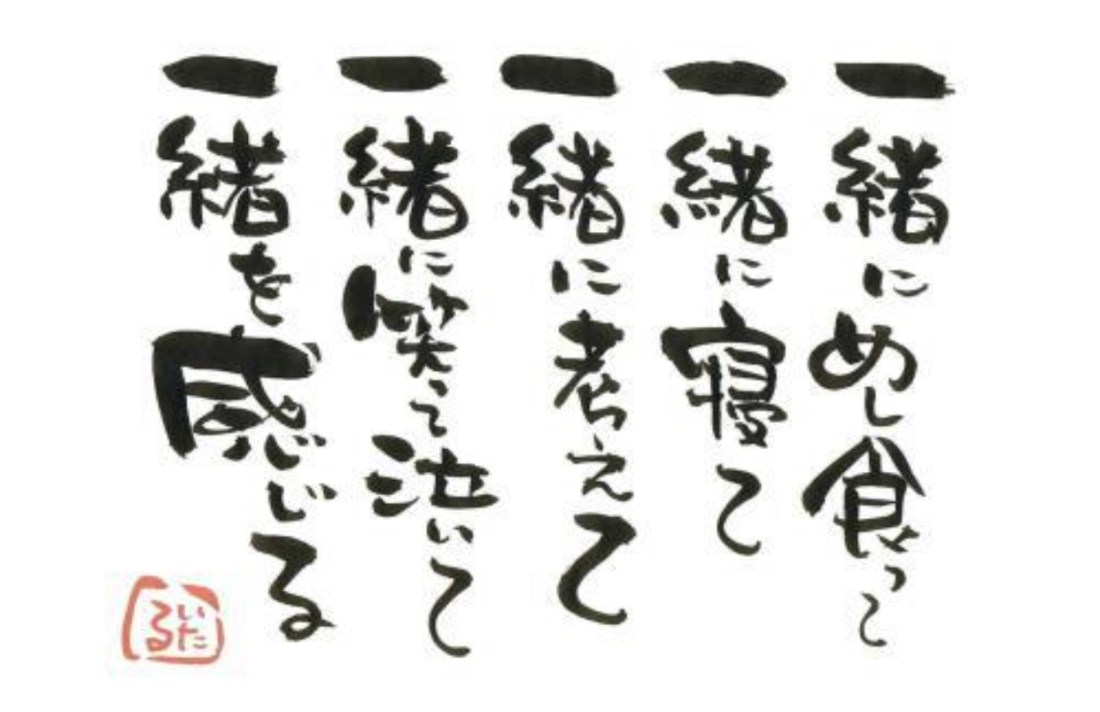 一緒にめし食って
一緒に寝て
一緒に考えて
一緒に笑って泣いて
一緒を感じる
いたる